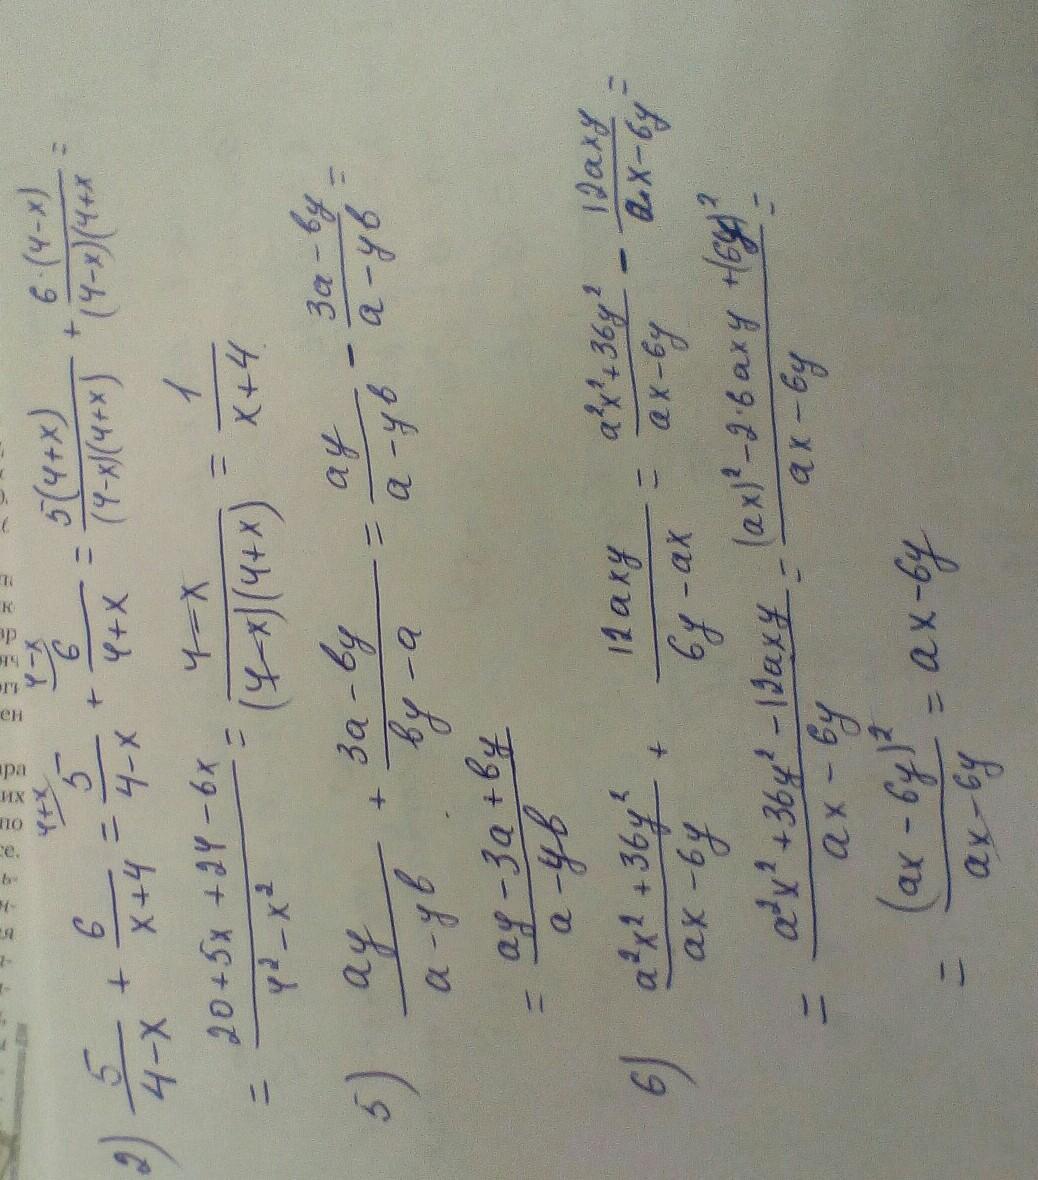 2) 5/(4-x) + 6/(x+4) = 5/(4-x) + 6/(4+x) = 5(4+x)/((4-x)(4+x)) + 6·(4-x)/((4-x)(4+x =
4+x 4-x
= (20+5x+24-6x)/(4²-x²) = (4-x)/((4-x)(4+x)) = 1/(x+4)
5) ay/(a-yb) + (3a-by)/(by-a) = ay/(a-yb) - (3a-by)/(a-yb) =
= (ay-3a+by)/(a-yb)
6) (a²x²+36y²)/(ax-6y) + 12axy/(6y-ax) = (a²x²+36y²)/(ax-6y) - 12axy/(ax-6y) =
= (a²x²+36y²-12axy)/(ax-6y) = ((ax)²-2·6axy+(6y)²)/(ax-6y) =
= (ax-6y)²/(ax-6y) = ax-6y
к
ен
ара
их
по
се.